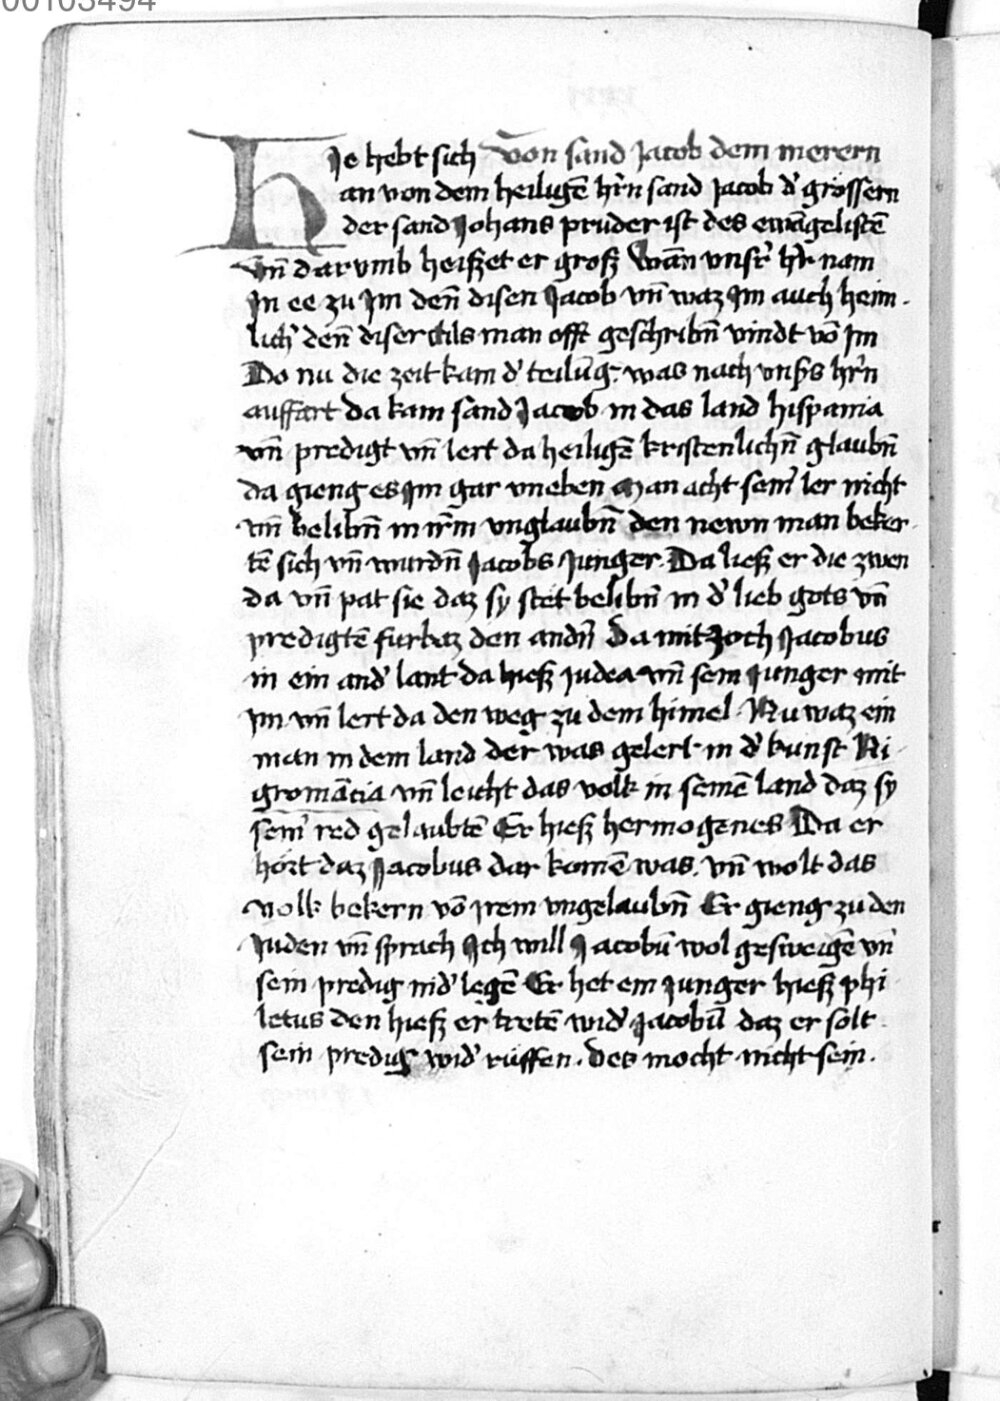 00103494
Hie hebt sich Von sand Jacob dem merern
an von dem heiligē hr̄n sand Jacob d' grössern
der sand Johans pruder ist des ewāgelistē
Vn̄ darvmb heisset er groß Wān vnsr' hr̄ nam
Jn ee zu Jm den̄ disen Jacob vn̄ waz Jm auch heim
lich' den̄ diser als man offt geschribn̄ vindt vō Jm
Do nu die zeit kam d' teilūg was nach vnßs hr̄n
auffart da kam sand Jacob in das land hispania
vn̄ predigt vn̄ lert da heiligē kristenlichn̄ glaubn̄
da gieng es Jm gar vneben Man acht sein' ler nicht
vn̄ belibn̄ in ir̄m vnglaubn̄ den newn man beker
tē sich vn̄ wurdn̄ Jacobs Junger Da ließ er die zwen
da vn̄ pat sie daz sy stet belibn̄ in d' lieb gots vn̄
predigtē furbaz den andn̄ Da mit zoch Jacobus
in ein and' lant da hieß Judea vn̄ sein Junger mit
Jm vn̄ lert da den weg zu dem himel Nu waz ein
man in dem land der was gelert in d' kunst Ni
gromācia vn̄ leicht das volk in seinē land daz sy
sein' red gelaubtē Er hieß hermogenes Da er
hort daz Jacobus dar komē was vn̄ wolt das
volk bekern vō Jrem vngelaubn̄ Er gieng zu den
Juden vn̄ sprach Jch will Jacobū wol gesweigē vn̄
sein predig nid' legē Er het ein Junger hieß phi
letus den hieß er tretē wid' Jacobū daz er solt
sein predig wid' rüffen. Des mocht nicht sein.